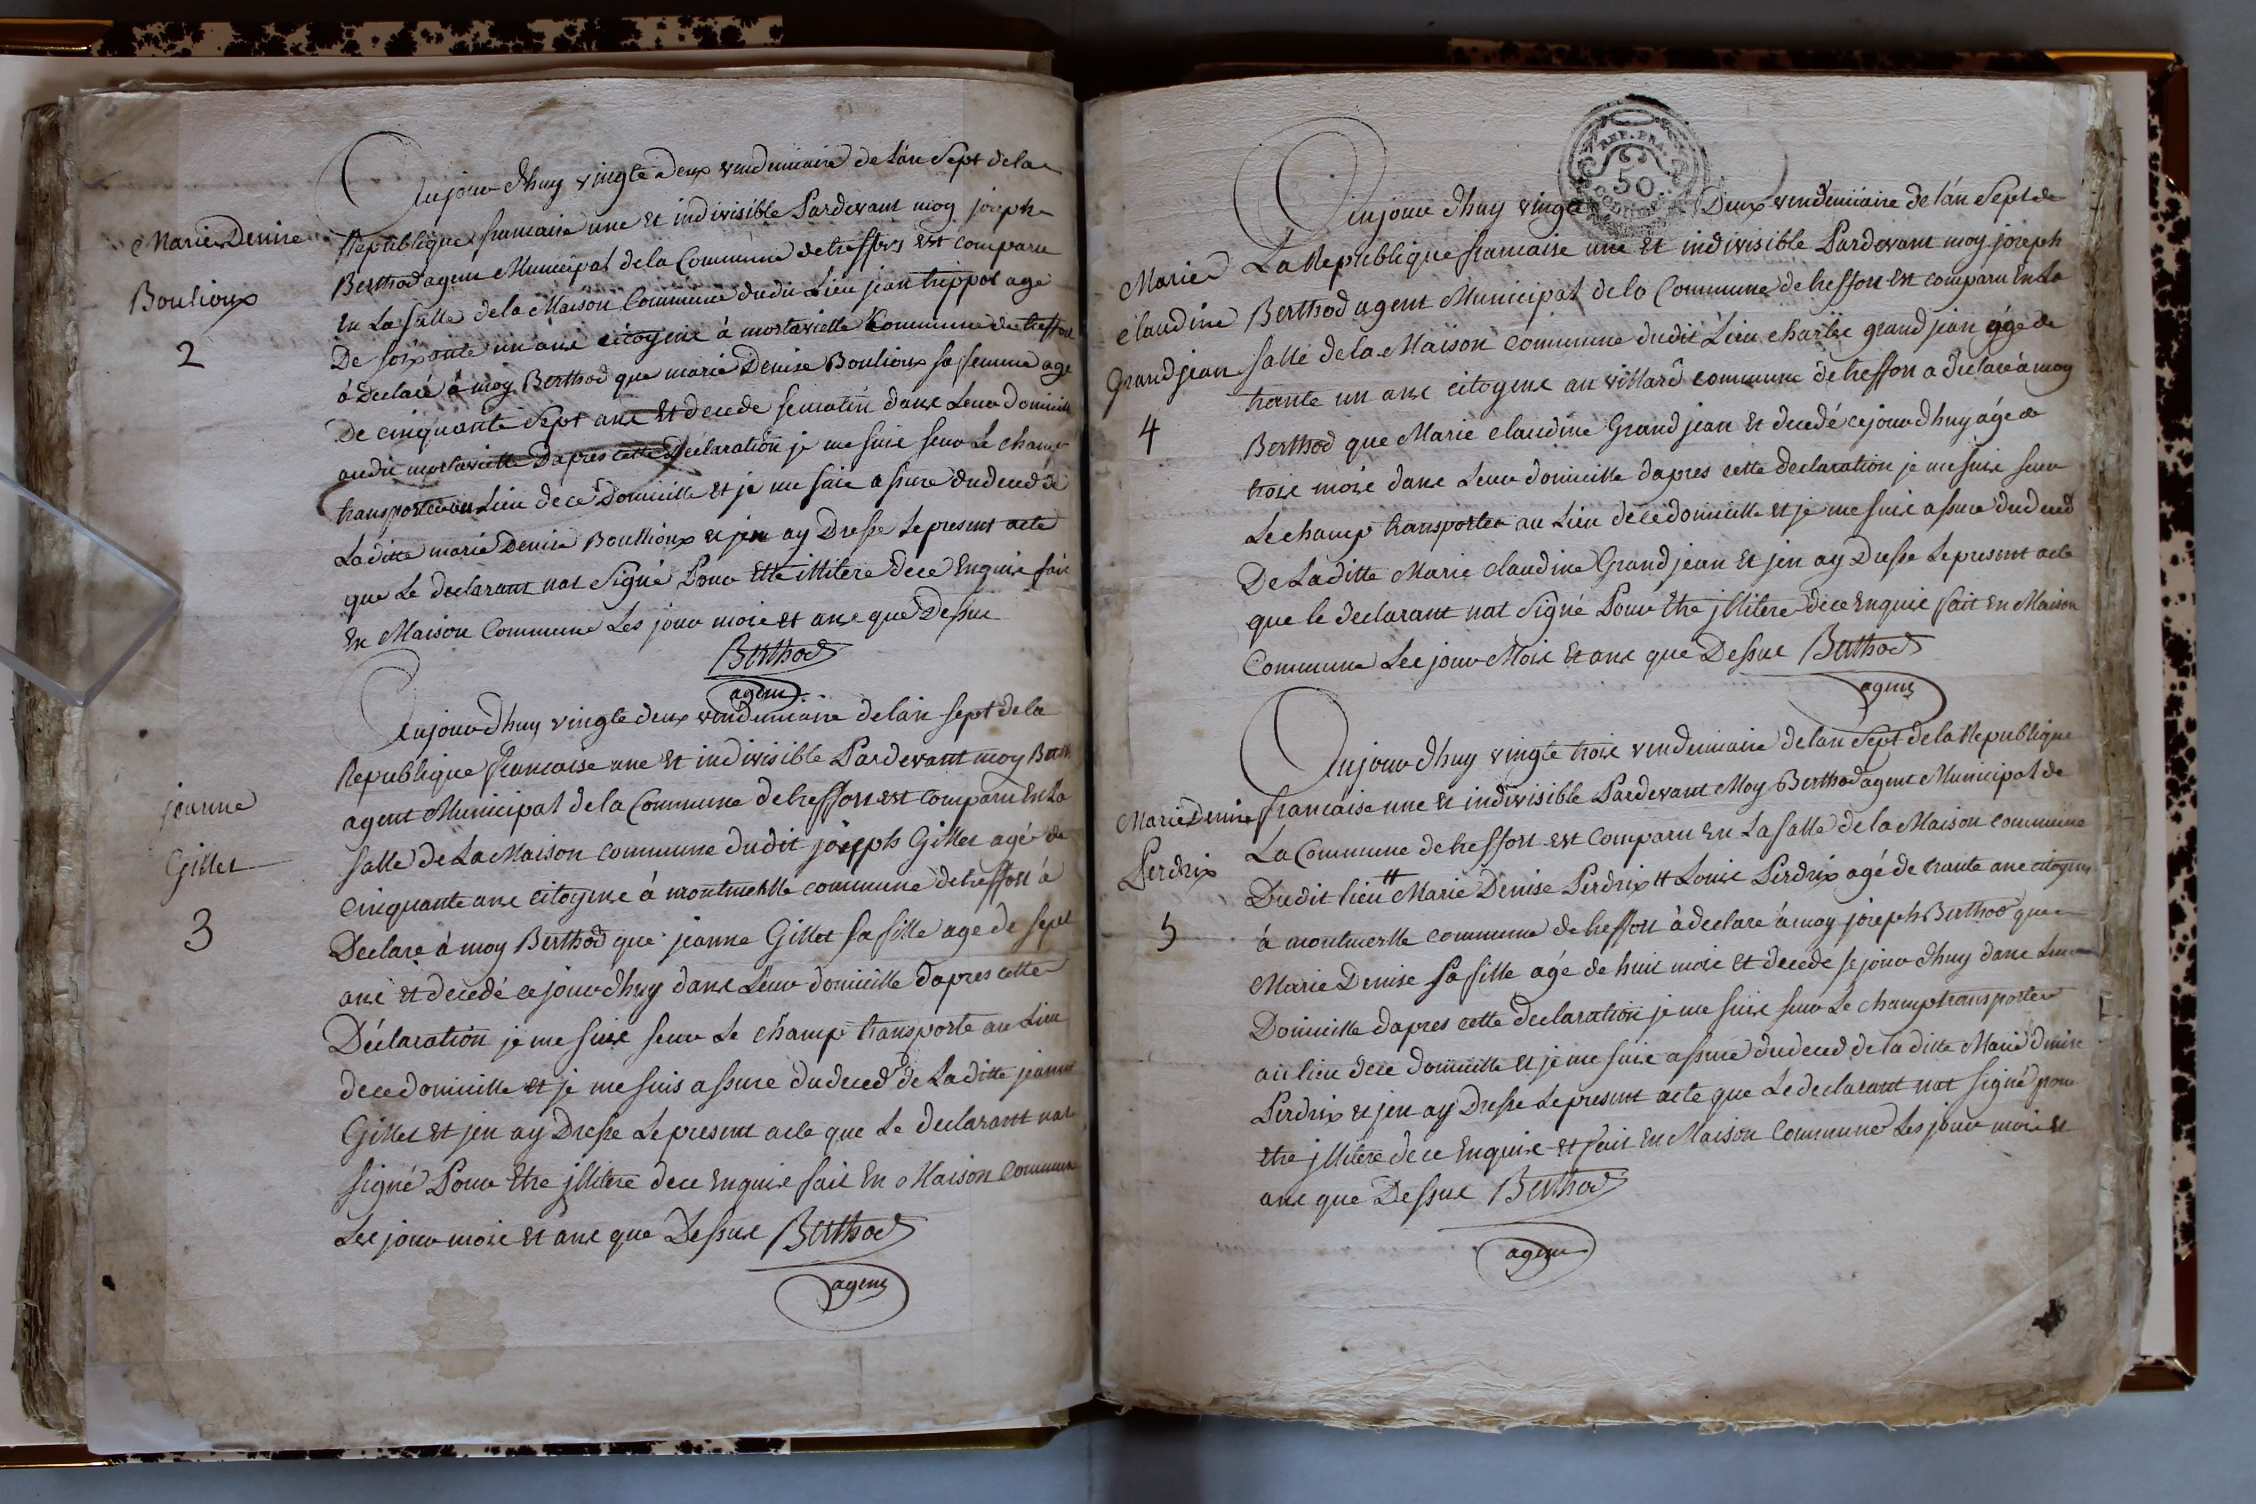 Marie Denise
Boulioux
2
Aujourdhuy vingte deux vendemiaire de Lan Sept dela
Republique francaise une et indivisible Pardevant moy joseph
Berthod agent Municipal dela Commune de treffort est comparu
En La Salle dela Maison Commune dudit Lieu jean trippoz agé
De soixante un ans citoyens à mortarielle Commune de treffort
à Declaré à moy Berthod que marie Denise Boulioux sa femme age
De cinquante Sept ans Et decede semattin dans Leur Domicille
audit mortarielle Dapres cette Declaration je me suis seur Le champ
transporter au Lieu de cè Domicille et je me suis assure dudecd de
Laditte marie Denise Boullioux et jen ay Dresse Le present acte
que Le declarant nat Signé Pour Ette illitere dece Enquis fait
En Maison Commune Les jour mois et ans que Dessus
Berthod
agent
jeanne
Gillet
3
Aujourdhuy vingte deux vendemiaire delan sept dela
Republique francaise une et indivisible Pardevant moy Berth
agent Municipal dela Commune de treffort est comparu En La
salle de La Maison commune dudit joseph Gillet agé de
cinquante ans citoyens à montmerlle commune de treffort à
Declare à moy Berthod que jeanne Gillet sa fille age de sept
ans et decedé ce jourdhuy dans Leur domicille dapres cette
Déclaration je me suis seur Le champ transporte au Lieu
dece domicille et je me suis assure dudecd de Laditte jeanne
Gillet et jen ay Dresse Le present acte que Le declarant nat
signé Pour Etre jllitere dece Enquis fait En Maison Commune
Les jour mois et ans que Dessus Berthod
agent
REP. FRA.
50
Marie
claudine
Grandjean
4
Aujourdhuy vingte Deux vendemiaire de lán Sept de
La Republique francaise une et indivisible Pardevant moy joseph
Berthod agent Municipal dela Commune de treffort est comparu En La
salle dela Maison commune dudit Lieu charlse grandjean agé de
trante un ans citoyens au villard commune de treffort a declaré à moy
Berthod que Marie claudine Grandjean et decedé cejourdhuy agé de
trois mois dans Leur domicille dapres cette declaration je me suis seur
Le champ transporter au Lieu dece domicille et je me suis assure dudecd
De Laditte Marie claudine Grandjean et jen ay Dresse Le present acte
que le declarant nat Signé Pour Etre jllitere dece Enquis fait En Maison
Commune Les jour Mois et ans que Dessus Berthod
agent
Marie Denise
Perdrix
5
Aujourdhuy vingte trois vendemiaire delan Sept dela Republique
francaise une et indivisible Pardevant Moy Berthod agent Municipal de
La Commune de treffort est comparu En La salle dela Maison commune
Dudit lieu # Marie Denise Perdrix # Louis Perdrix agé de trante ans citoyens
à montmerlle commune de treffort à declare à moy joseph Berthod que
Marie Denise sa fille agé de huit mois et decede se jourdhuy dans Leur
Domicille dapres cette declaration je me suis seur Le champ transporter
au lieu dece domicille et je me suis assure dudeced de la ditte Marie Denise
Perdrix et jen ay Dresse Le present acte que Le declarant nat signé pour
etre jllitere dece Enquis et fait En Maison Commune Les jour mois et
ans que Dessus Berthod
agent